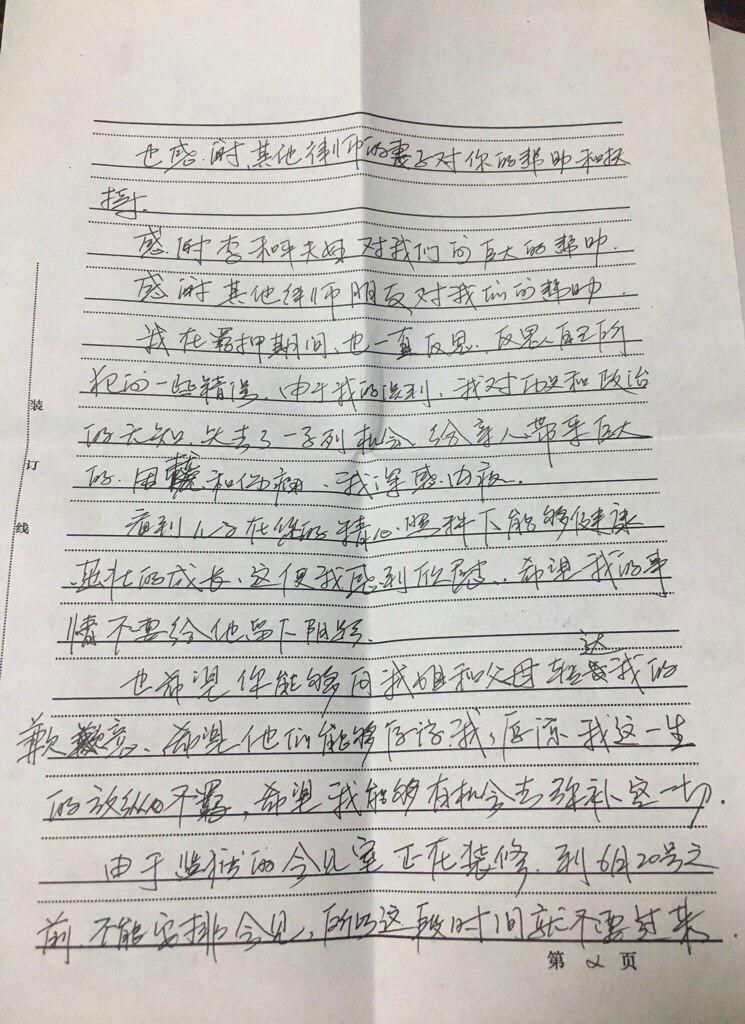 也感谢其他律师的妻子对你的帮助和扶
持。
感谢李和平夫妇对我们的巨大的帮助。
感谢其他律师朋友对我们的帮助。
我在羁押期间、也一直反思、反思自己所
犯的一些错误、由于我的误判、我对历史和政治
的无知、失去了一系列机会、给亲人带来巨大
的 和伤痛、我深感内疚。
看到儿子在你的精心照料下能够健康
茁壮的成长、这使我感到欣慰、希望我的事
情不要给他留下阴影。
也希望你能够向我姐和父母转达我的
歉意、希望他们能够原谅我，原谅我这一生
的放纵不羁，希望我能够有机会去弥补这一切。
由于监狱的会见室正在装修、到6月20号之
前不能安排会见、所以这段时间就不要过来
装
订
线
第 2 页